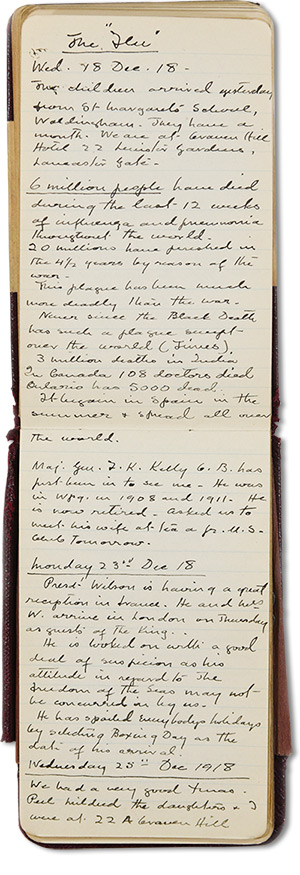 The "Flu"
Wed. 18 Dec. 18 -
The children arrived yesterday
from St Margaret's School,
Waldingham. They have a
month. We are at Craven Hill
Hotel 22 Leinster Gardens,
Lancaster Gate -
6 million people have died
during the last 12 weeks
of influenza and pneumonia
throughout the world.
20 millions have perished in
the 4½ years by reason of the
war -
This plague has been much
more deadly than the war.
Never since the Black Death
has such a plague swept
over the world (Times).
3 million deaths in India
In Canada 108 doctors died
Ontario has 5000 dead.
It began in Spain in the
summer & spread all over
the world.
Maj. Gen. F. K. Kelly C. B. has
just been in to see me - He was
in Wpg. in 1908 and 1911. He
is now retired - asked us to
meet his wife at tea a Jr. U. S.
Club tomorrow.
Monday 23rd Dec 18
Presdt Wilson is having a great
reception in France. He and Mrs
W. arrive in London on Thursday
as guests of the King..
He is looked on with a good
deal of suspicion as his
attitude in regard to the
freedom of the Seas may not
be concurred in by us.
He has spoiled everybodys holidays
by selecting Boxing Day as the
date of his arrival.
Wednesday 25th Dec 1918
We had a very good Xmas.
the daughters & I
were at 22 A Craven Hill